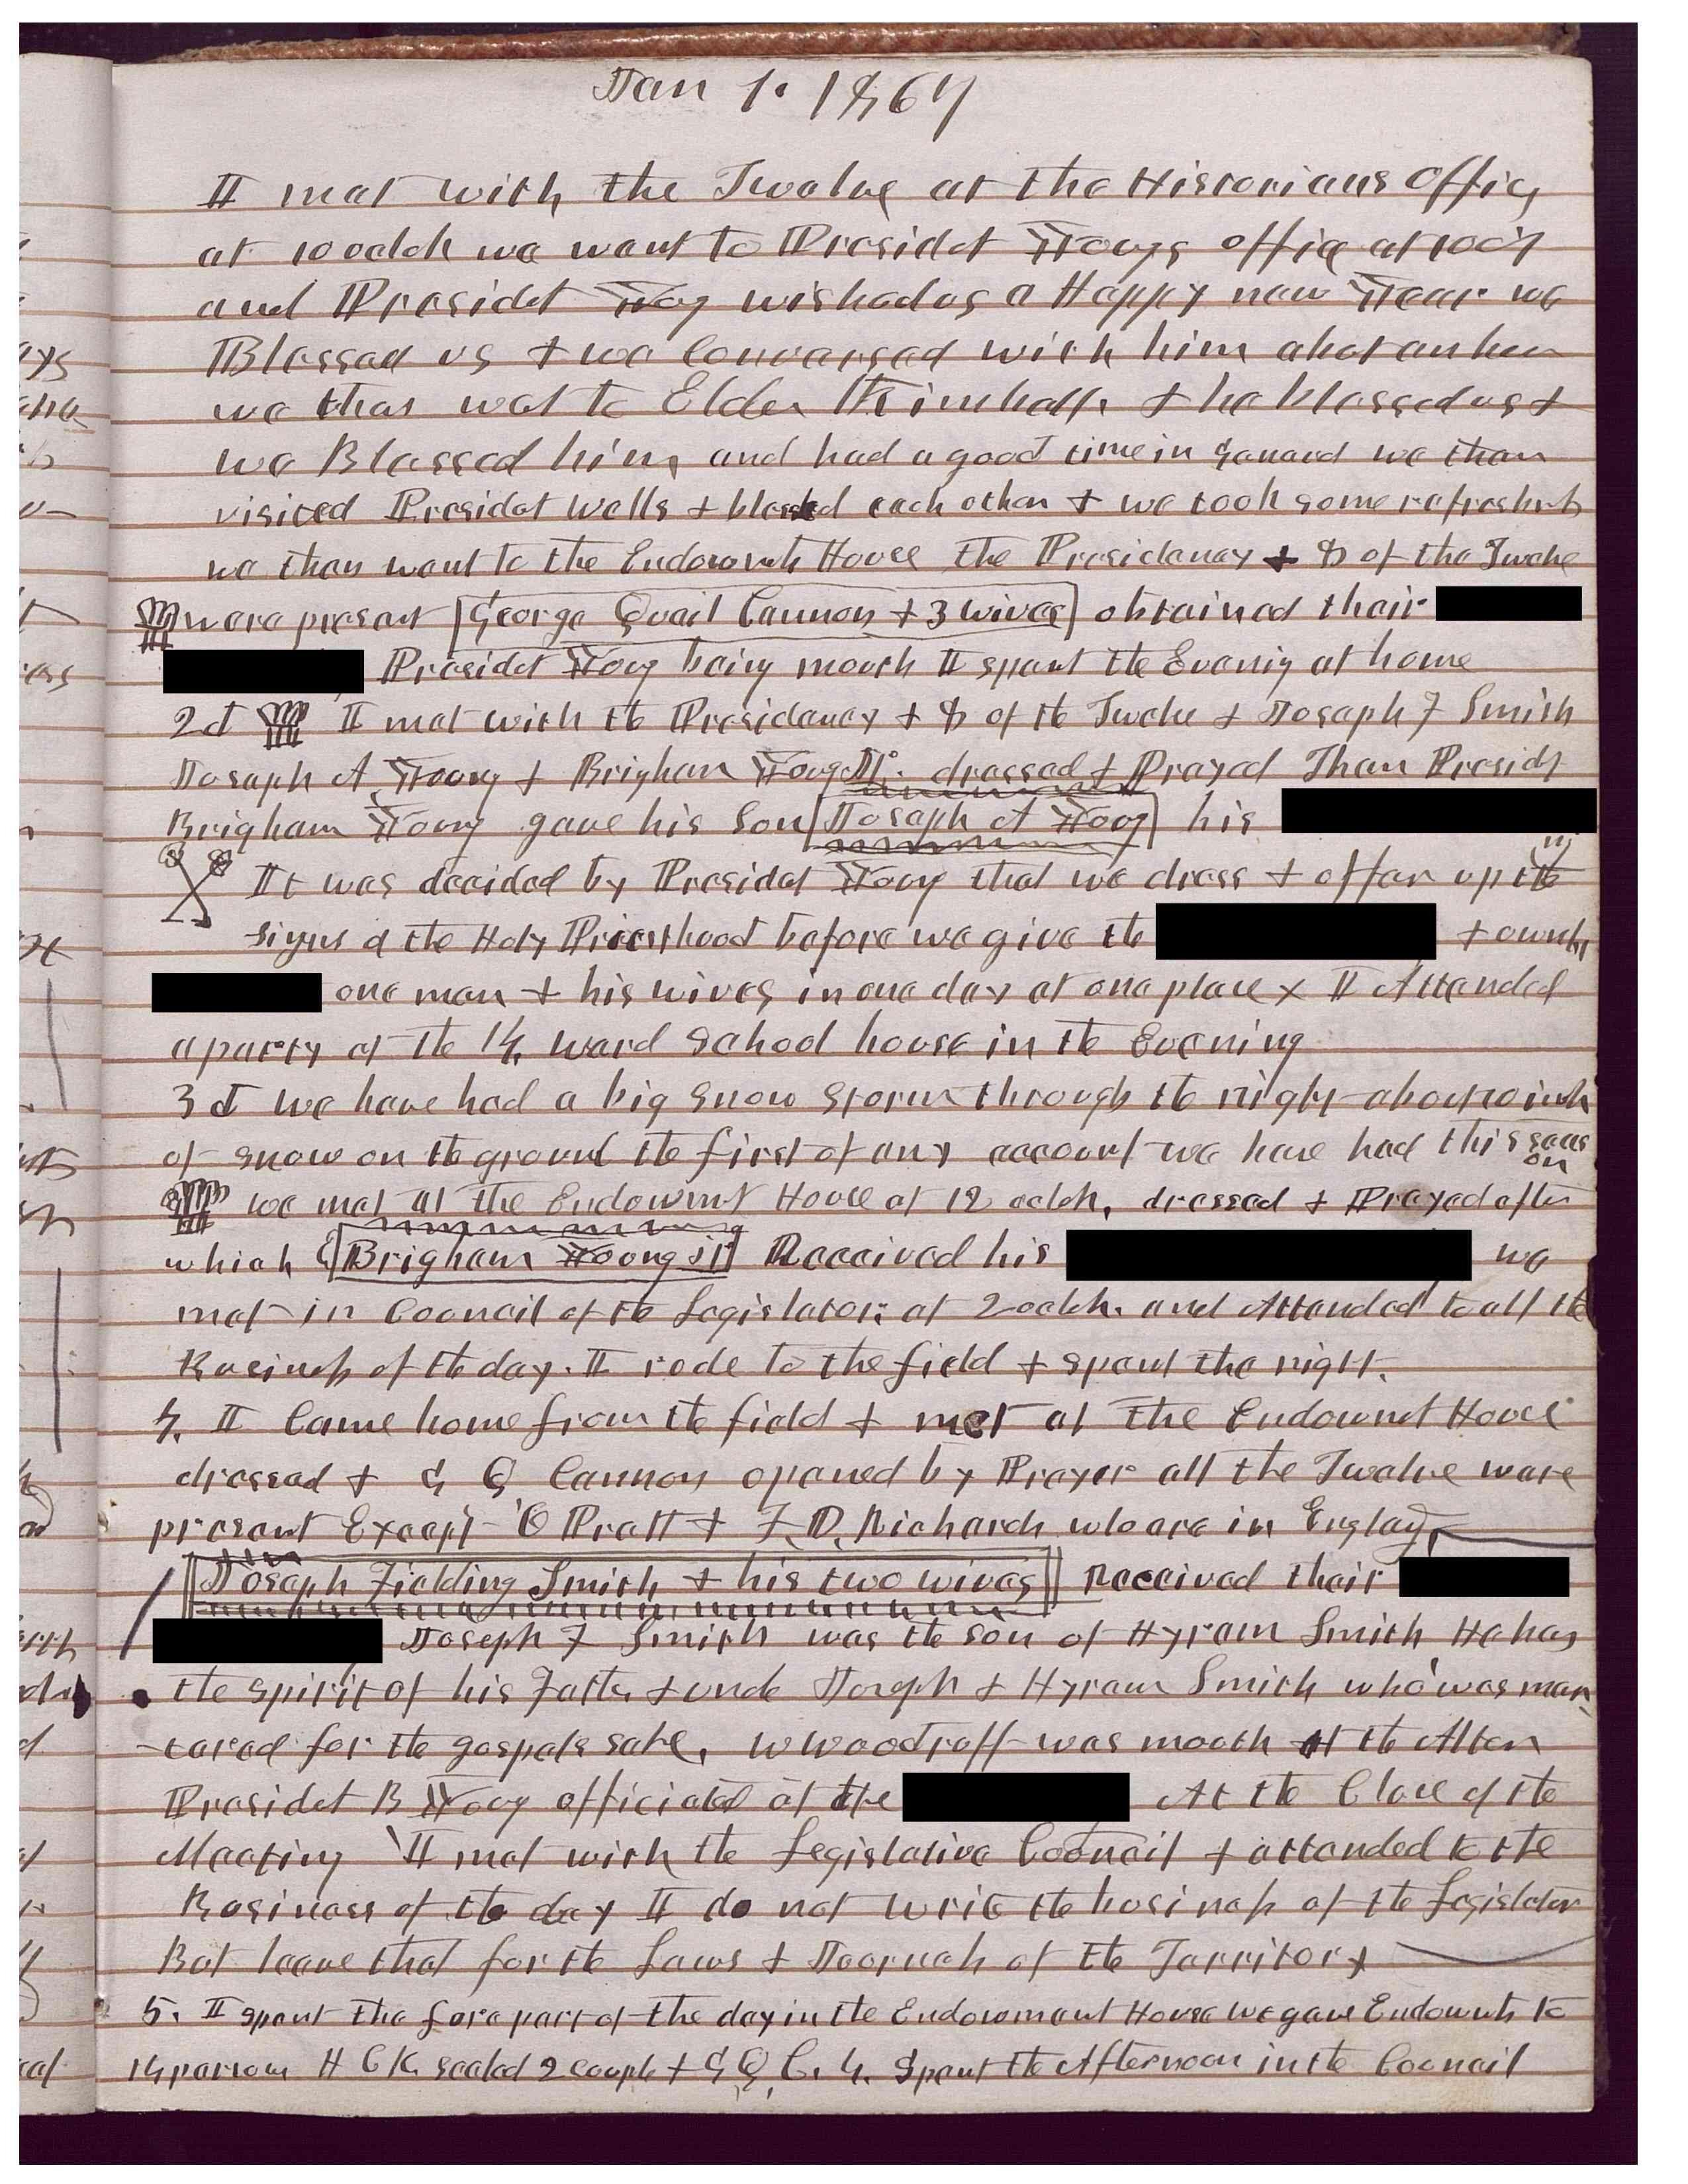 Jan 1. 1867
I met with the Twelve at the Historians Office
at 10 oclok we went to Presidet Youngs office at 10 oc
and Presidet Young wished us a Happy new Year we
Blessed us & we Conversed with him about an hour
we then wet to Elder Kimballs & he blessed us &
we Blessed him, and had a good time in general we then
visited Presidet Wells & blessed each other & we took some refreshmts
we then went to the Endowmts House the Presidency & 8 of the Twelve
were present George Quail Cannon & 3 wives obtained their
Presidet Young being mouth I spent the Evenig at home
2d I met with the Presidency & 8 of the Twelve & Joseph F Smith
Joseph A Young & Brigham Young Jr. dressed & Prayed Then Presidt
Brigham Young gave his Son Joseph A Young his
It was decided by Presidet Young that we dress & offer up the
signs of the Holy Priesthood before we give the &
one man & his wives in one day at one place X I Attended
a party at the 14 ward School house in the Evening
3d we have had a big snow storm through the night about 10 inch
of snow on the ground the first of any account we have had this seas
on
we met at the Endowmnt House at 12 oclok, dressed & Prayed after
which Brigham Young Jr Received his we
met in Council of the Legislator at 2 oclok. and Attended to all the
Business of the day. I rode to the field & spent the night.
4. I Came home from the field & met at the Endowmet House
dressed & G Q Cannon opened by Prayer all the Twelve were
present Except O Pratt & F. D. Richards who are in England,
Joseph Fielding Smith & his two wives Received their
Joseph F Smith was the son of Hyram Smith He has
the spirit of his Father & uncle Joseph & Hyram Smith who was mar
-tered for the gospels sake, W Woodruff was mouth At the Alter
Presidet B Young officiated at the At the Close of the
Meeting I met with the Legislative Council & attended to the
Business of the day I do not write the business of the Legislator
But leave that for the Laws & Journals of the Territory
5. I spent the fore part of the day in the Endowment House we gave Endowmts to
14 persons H C K sealed 2 couple & G Q C. 4. Spent the Afternoon in the Council